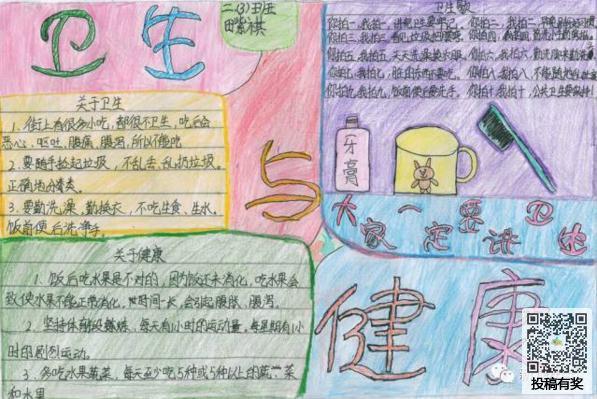 卫生
二(3)班
田紫祺
卫生歌
你拍一,我拍一,讲卫生要牢记。你拍二,我拍二,
你拍三,我拍三,看见垃圾。你拍四,我拍四,
你拍五,我拍五,天天洗澡换衣服。你拍六,我拍六,
你拍七,我拍七,脏东西不要吃。你拍八,我拍八,
你拍九,我拍九,饭前便后要洗手。你拍十,我拍十,公共卫生要保持!
关于卫生
1、街上有很多小吃,都很不卫生,吃后会
恶心,呕吐,腹痛,腹泻,所以不能吃。
2.要随手捡起垃圾,不乱丢、乱扔垃圾。
正确地分类。
3.要勤洗澡,勤换衣,不吃生食、生水。
饭前便后洗净手。
与
牙膏
大家一定要讲卫生
关于健康
1、饭后吃水果是不对的,因为饭还未消化,吃水果会
致使水果不能正常消化,时间一长,会引起腹胀、腹泻。
2.坚持体育锻炼,每天有1小时的运动量,每星期有1小
时的剧烈运动。
3.多吃水果蔬菜,每天至少吃5种或5种以上的蔬菜
和水果
健康
投稿有奖